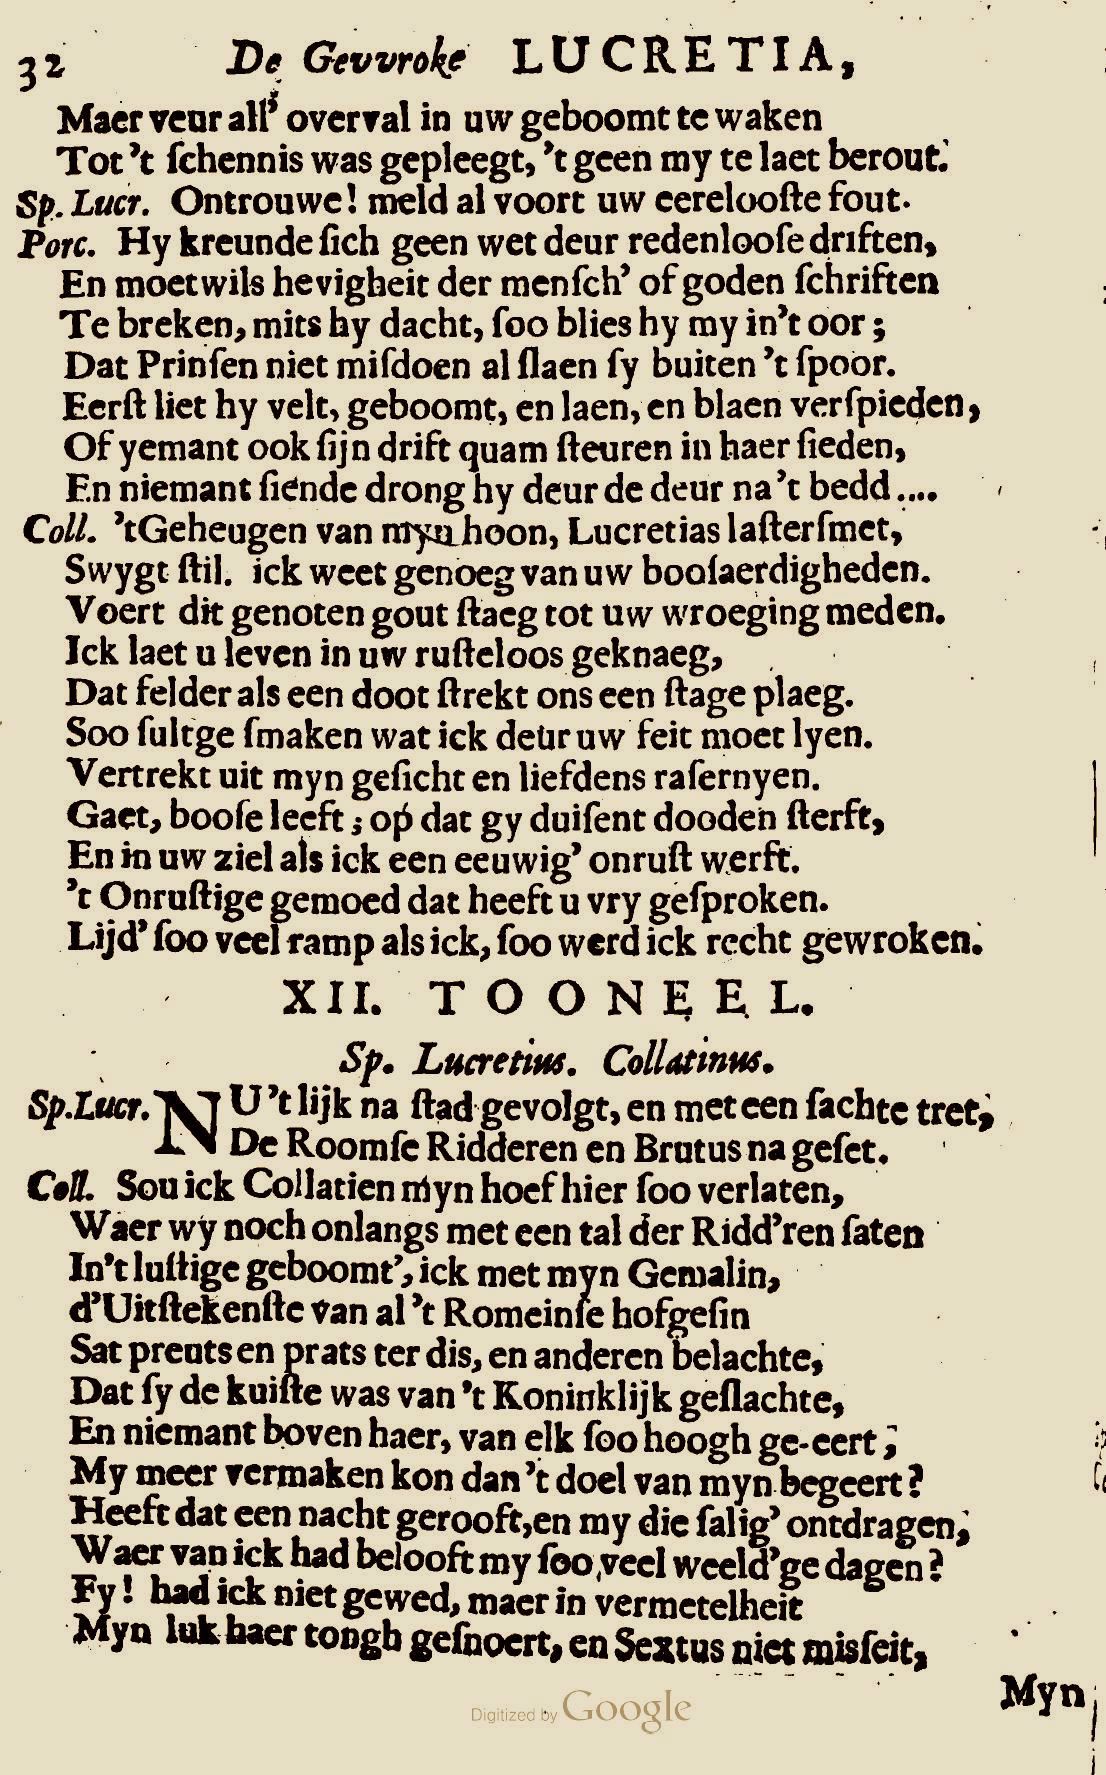 32 De Gevvroke LUCRETIA,
Maer veur all' overval in uw geboomt te waken
Tot 't ſchennis was gepleegt, 't geen my te laet berout.
Sp. Lucr. Ontrouwe! meld al voort uw eerelooſte fout.
Porc. Hy kreunde ſich geen wet deur redenlooſe driften,
En moetwils hevigheit der menſch' of goden ſchriften
Te breken, mits hy dacht, ſoo blies hy my in't oor;
Dat Prinſen niet miſdoen al ſlaen ſy buiten 't ſpoor.
Eerſt liet hy velt, geboomt, en laen, en blaen verſpieden,
Of yemant ook ſijn drift quam ſteuren in haer ſieden,
En niemant ſiende drong hy deur de deur na't bedd....
Coll. 'tGeheugen van myn hoon, Lucretias laſterſmet,
Swygt ſtil. ick weet genoeg van uw booſaerdigheden.
Voert dit genoten gout ſtaeg tot uw wroeging meden.
Ick laet u leven in uw ruſteloos geknaeg,
Dat felder als een doot ſtrekt ons een ſtage plaeg.
Soo ſultge ſmaken wat ick deur uw feit moet lyen.
Vertrekt uit myn geſicht en liefdens raſernyen.
Gaet, booſe leeft; op dat gy duiſent dooden ſterft,
En in uw ziel als ick een eeuwig' onruſt werft.
't Onruſtige gemoed dat heeft u vry geſproken.
Lijd' ſoo veel ramp als ick, ſoo werd ick recht gewroken.
XII. TOONEEL.
Sp. Lucretius. Collatinus.
Sp. Lucr. NU 't lijk na ſtad gevolgt, en met een ſachte tret,
De Roomſe Ridderen en Brutus na geſet.
Coll. Sou ick Collatien myn hoef hier ſoo verlaten,
Waer wy noch onlangs met een tal der Ridd'ren ſaten
In't luſtige geboomt', ick met myn Gemalin,
d'Uitſtekenſte van al 't Romeinſe hofgeſin
Sat preuts en prats ter dis, en anderen belachte,
Dat ſy de kuiſte was van 't Koninklijk geſlachte,
En niemant boven haer, van elk ſoo hoogh ge-eert;
My meer vermaken kon dan 't doel van myn begeert?
Heeft dat een nacht gerooft, en my die ſalig' ontdragen,
Waer van ick had belooft my ſoo veel weeld'ge dagen?
Fy! had ick niet gewed, maer in vermetelheit
Myn luk haer tongh geſnoert, en Sextus niet misſeit,
Myn
Digitized by Google